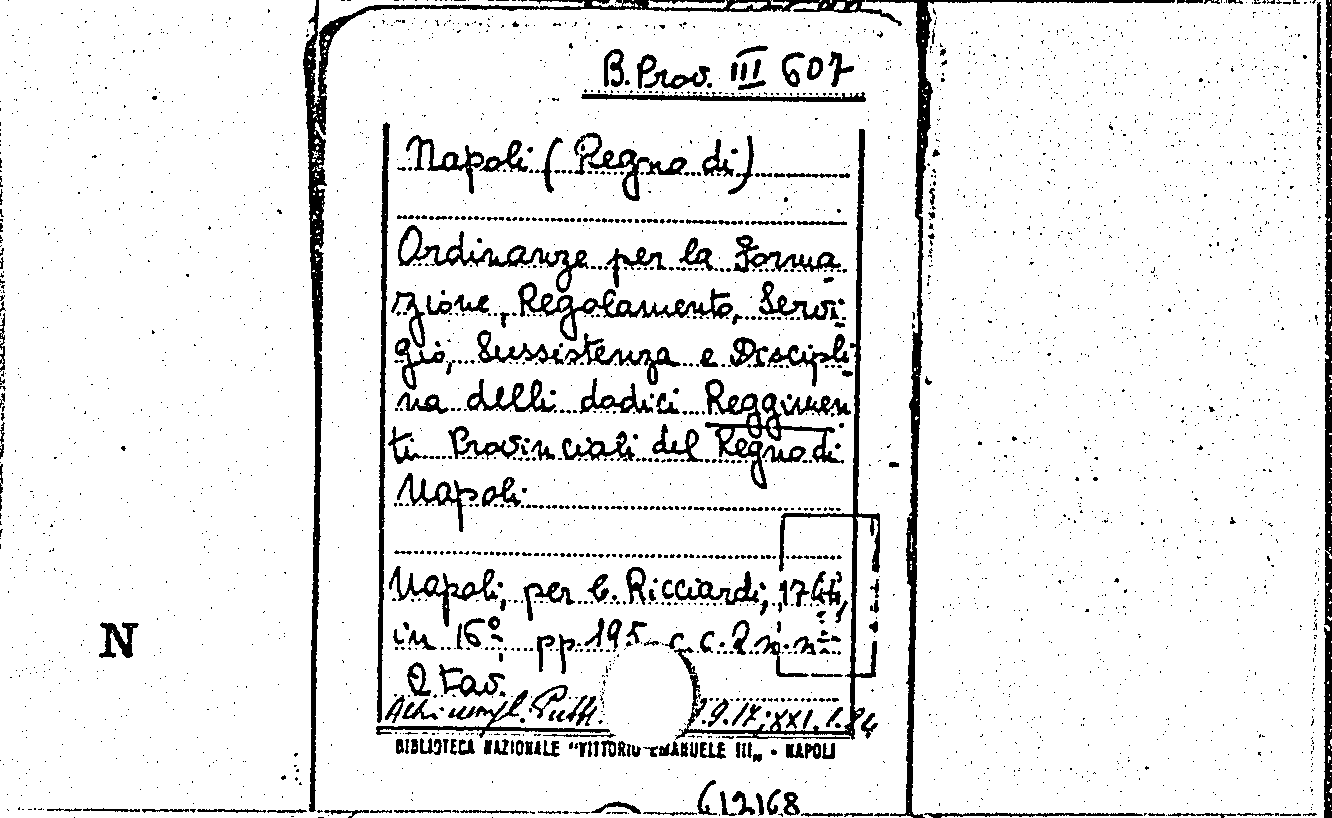 B. Prov. III 607
Napoli (Regno di)
Ordinanze per la Forma
zione, Regolamento, Servi-
gio, Sussistenza e Discipli-
na delli dodici Reggimen
ti Provinciali del Regno di
Napoli.
Napoli, per C. Ricciardi, 1744,
in 16º, pp. 195, c.c. 2 n.n.
2 Tav.
XXI.1.84
BIBLIOTECA NAZIONALE "VITTORIO EMANUELE III„ - NAPOLI
N
612168